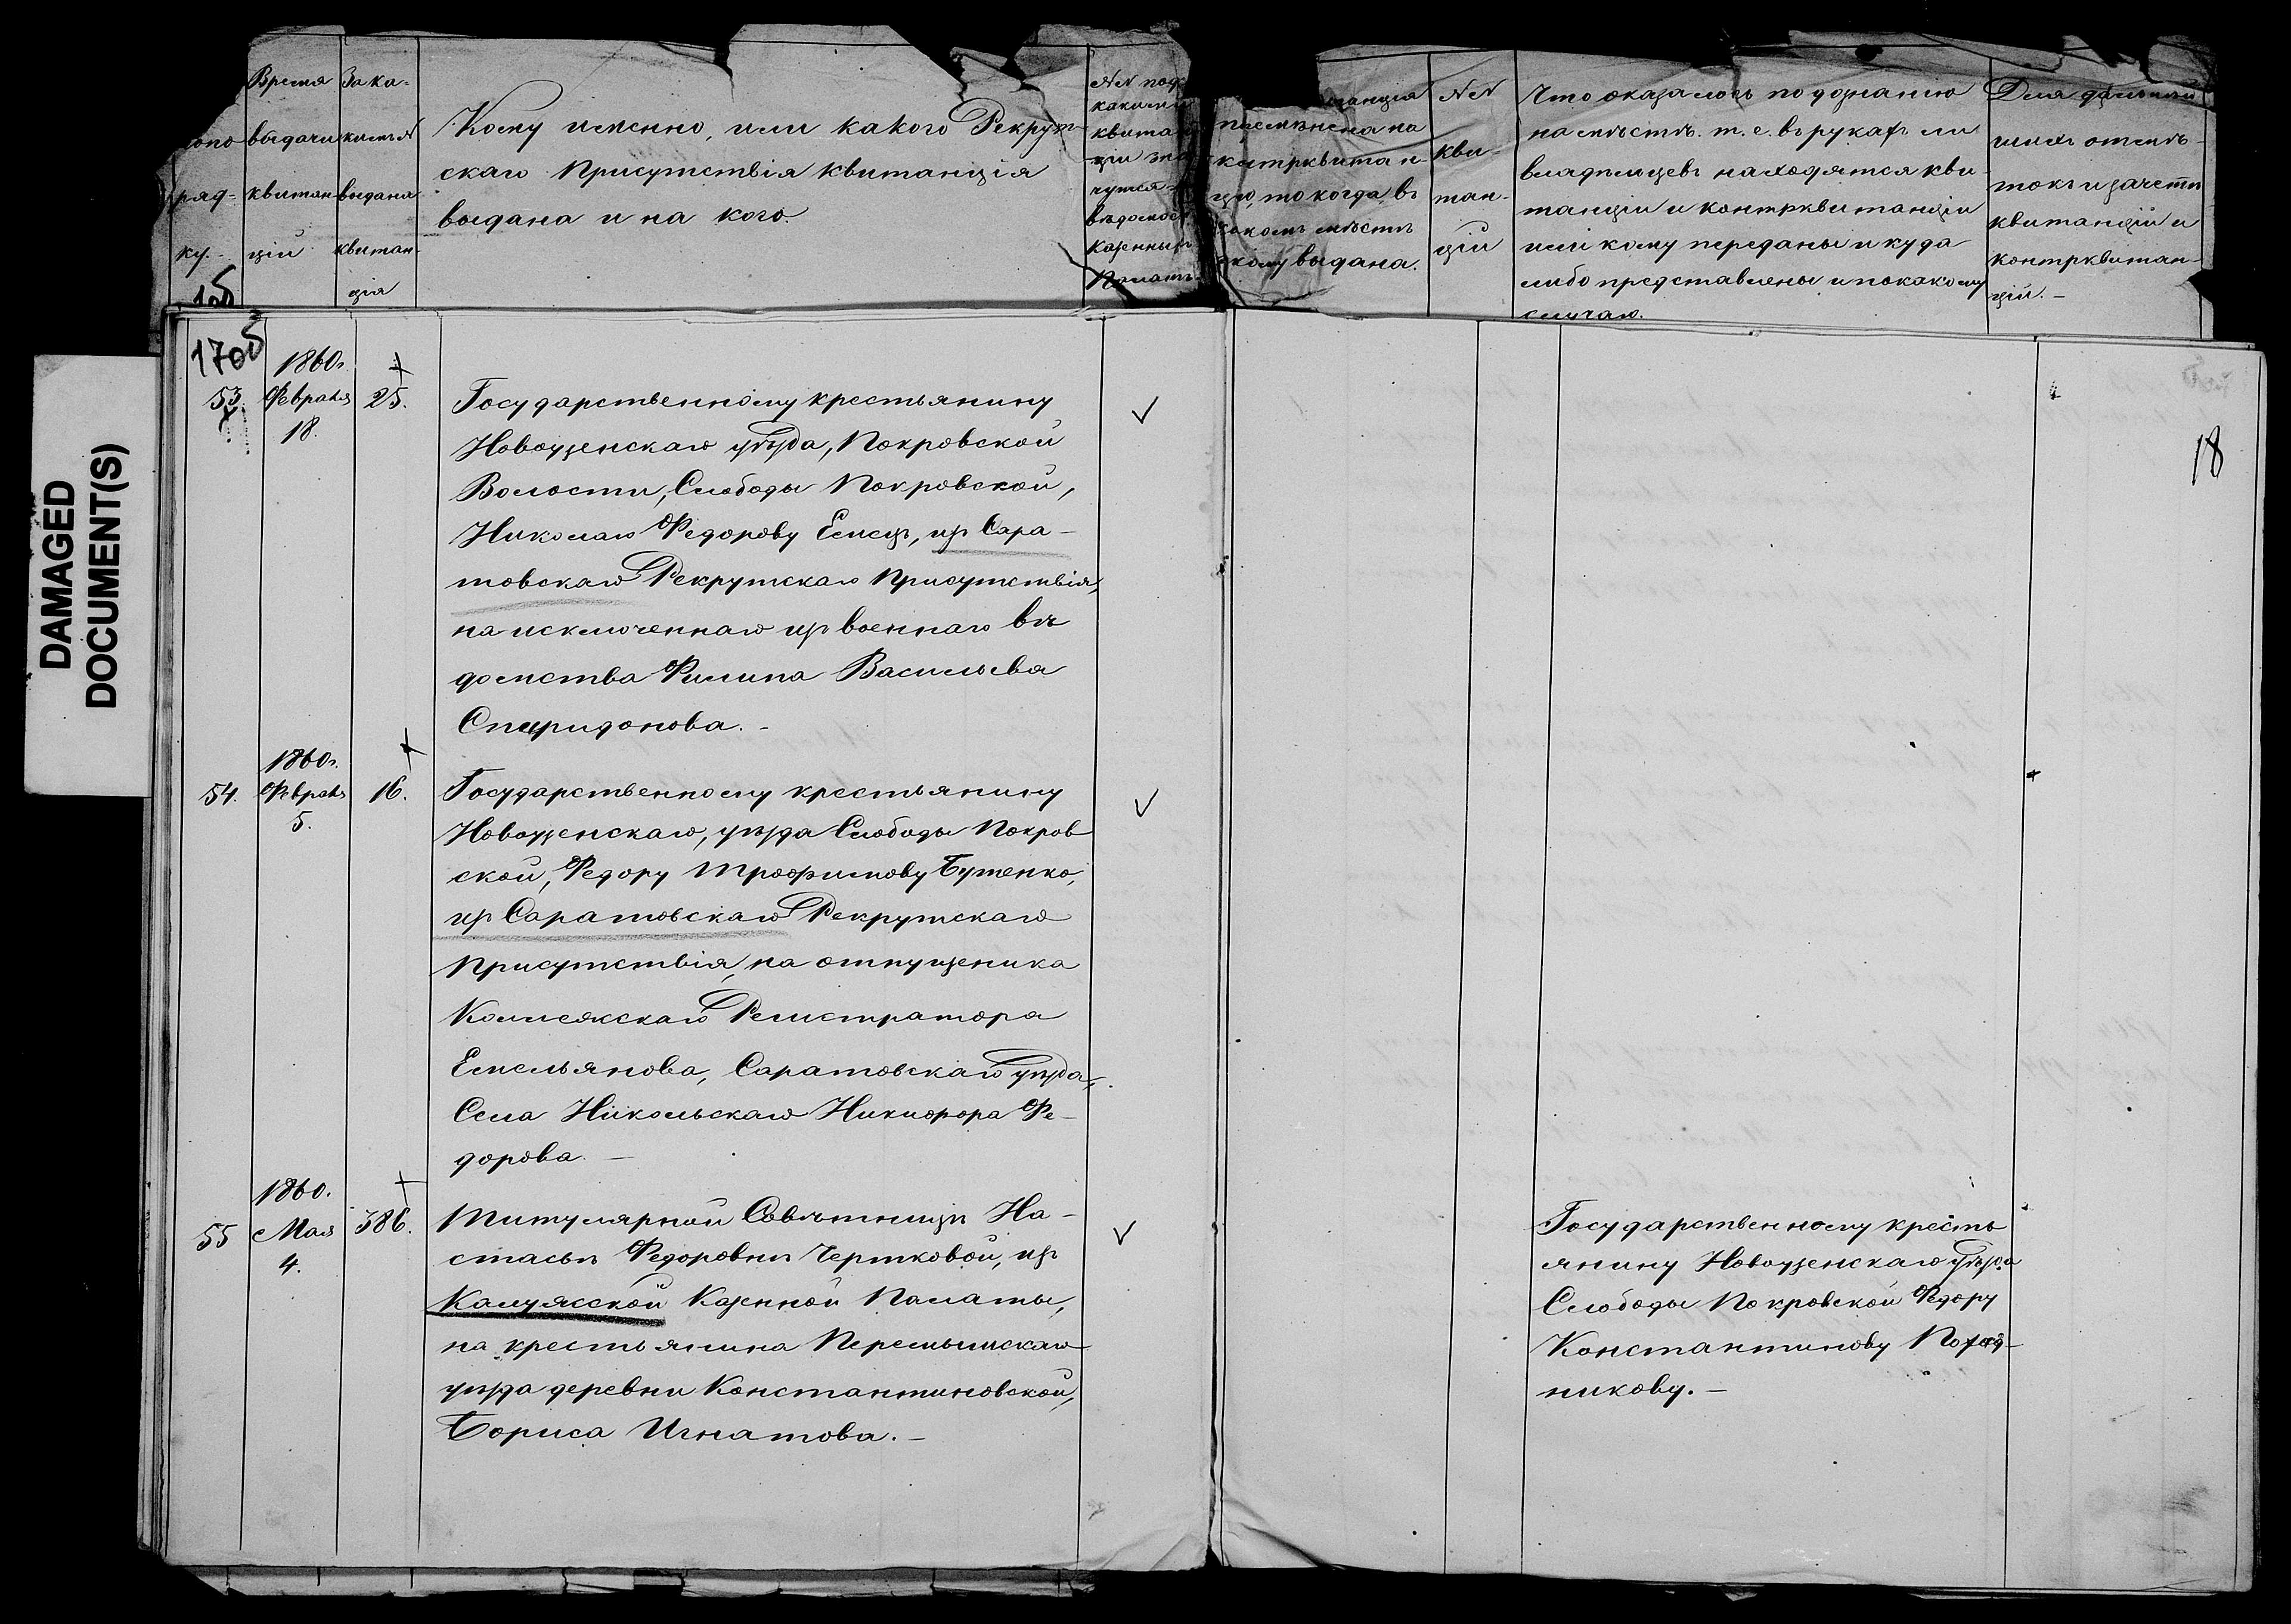 ряд-
ку.
Время
выдачи
квитан
ціи
За ка-
кимъ N
выдана
квитан-
ція
Кому именно, или какого Рекрут-
скаго Присутствія квитанція
выдана и на кого
NN под
какими
квитан
ціи
чутся
ведомост
Казенныхъ
Палатъ
на
контрквитан-
цію, то когда, въ
какомъ мѣстѣ
кому выдана.
NN
кви-
тан-
цій
Что оказалось по дознанію
на мѣстѣ. т. е. въ рукахъ ли
владельцевъ находятся кви-
танціи и контрквитанціи
или кому переданы и куда
либо представлены и по какому
случаю.
Для дальнѣй
шихъ отмѣ-
токъ и зачетѣ
квитанцій и
контрквитан-
цій. -
170б
18
53.
1860г.
Февраля
18.
25.
Государственному крестьянину
Новоузенскаго уѣзда, Покровской
Волости, Слободы Покровской,
Николаю Федорову Емецъ, изъ Сара-
товскаго Рекрутскаго Присутствія,
на исключеннаго изъ военнаго вѣ
домства Филипа Васильева
Спиридонова. -
54.
1860г.
Февраля
5.
16.
Государственному крестьянину
Новоузенскаго, уѣзда Слободы Покров
ской, Федору Трофимову Бутенко,
изъ Саратовскаго Рекрутскаго
Присутствія, на отпущеника
Коллежскаго Регистратора
Емельянова, Саратовскаго уѣзда,
Села Никольскаго Никифора Фе-
дорова. -
55
1860.
Мая
4.
386.
Титулярной Совѣтницѣ На-
стасьѣ Федоровнѣ Чертковой, изъ
Калужской Казенной Палаты,
на крестьянина Перемышскаго
уѣзда деревни Константиновской,
Бориса Игнатова. -
Государственному кресть
янину Новоузенскаго уѣзда
Слободы Покровской Федору
Константинову
никову. -